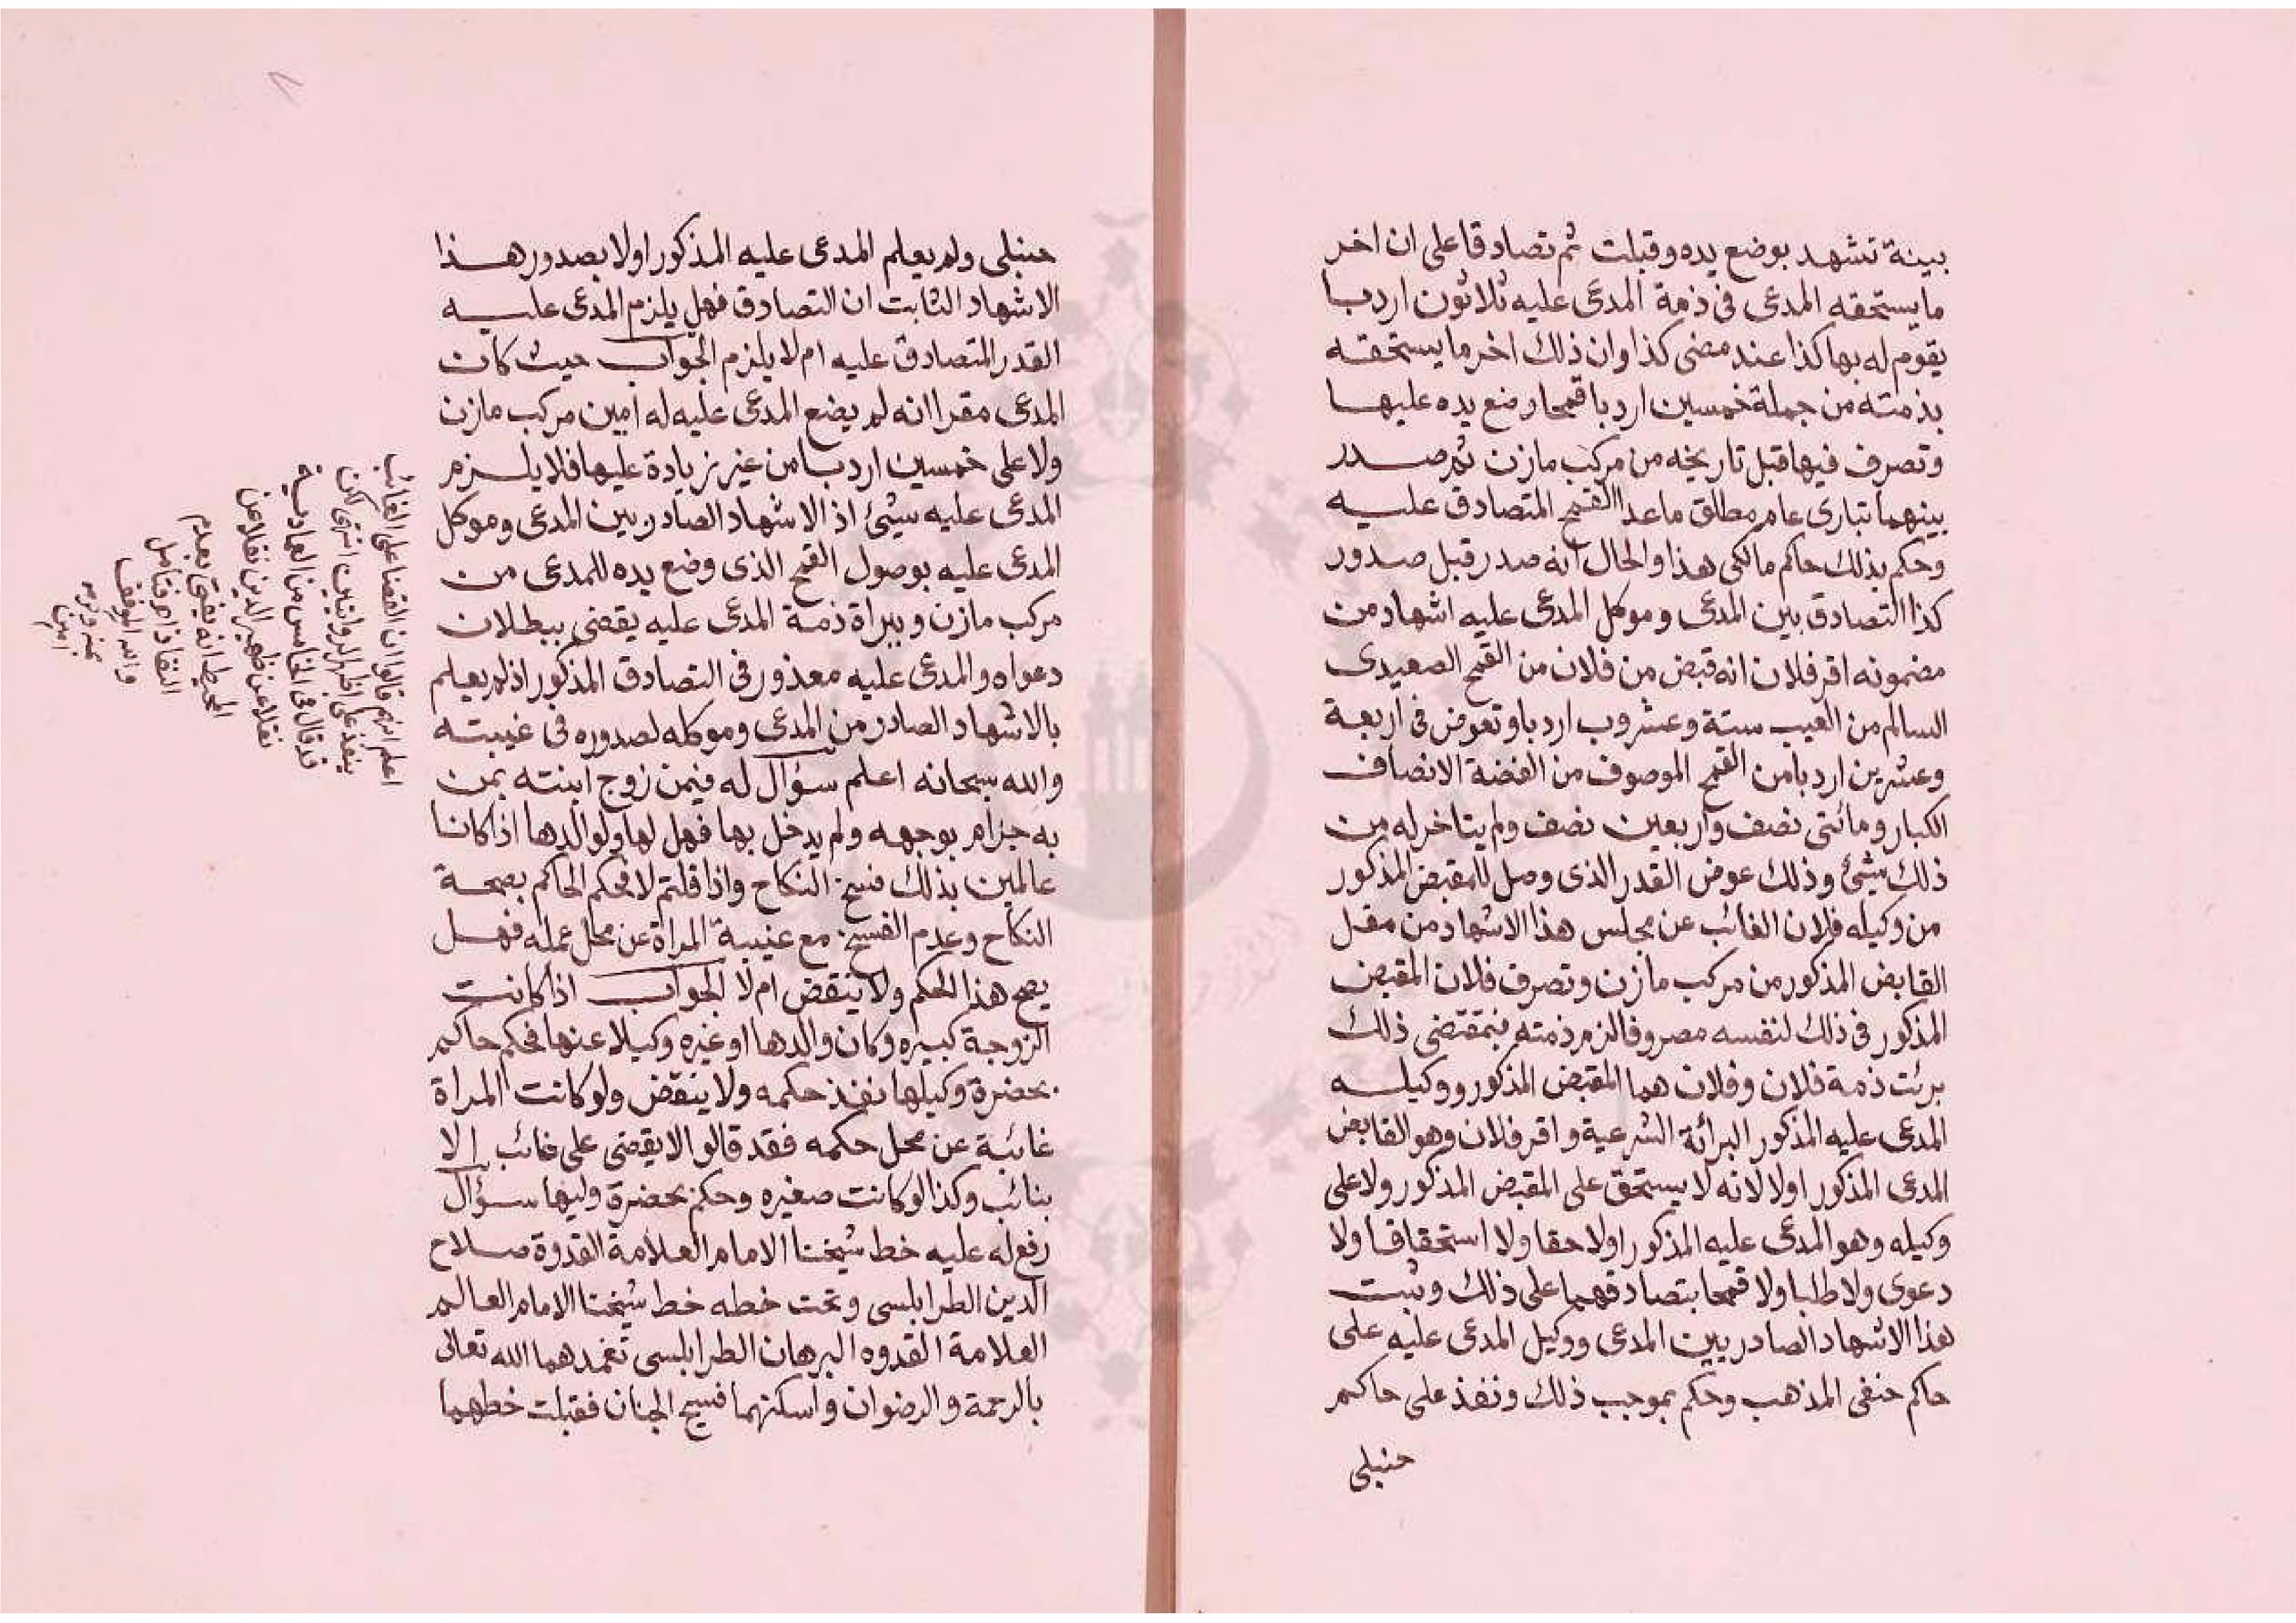 بينة تشهد بوضع يده وقبلت ثم تصادقا على ان اخر
ما يستحقه المدعى فى ذمة المدعى عليه ثلاثون اردبا
يقوم له بها كذا عند مضى كذا وان ذلك اخر ما يستحقه
بذمته من جملة خمسين اردبا قمحا وضع يده عليها
وتصرف فيها قبل تاريخه من مركب مازن ثم صدر
بينهما تبارى عام مطلق ما عدا القمح المتصادق عليه
وحكم بذلك حاكم مالكى هذا والحال انه صدر قبل صدور
كذا التصادق بين المدعى وموكل المدعى عليه اشهاد من
مضمونه اقر فلان انه قبض من فلان من القمح الصعيدى
السالم من العيب ستة وعشرون اردبا وتعوض فى اربعة
وعشرين اردبا من القمح الموصوف من الفضة الانصاف
الكبار ومائتى نصف واربعين نصف ولم يتاخر له من
ذلك شيئ وذلك عوض القدر الذى وصل للمقبض المذكور
من وكيله فلان الغائب عن مجلس هذا الاشهاد من مقبل
القابض المذكور من مركب مازن وتصرف فلان المقبض
المذكور فى ذلك لنفسه مصروفا لزم ذمته بمقتضى ذلك
برئت ذمة فلان وفلان هما المقبض المذكور ووكيله
المدعى عليه المذكور البرائة الشرعية واقر فلان وهو القابض
المدعى المذكور اولا لانه لا يستحق على المقبض المذكور ولا على
وكيله وهو المدعى عليه المذكور اولا حقا ولا استحقاقا ولا
دعوى ولا طلبا ولا قمحا بتصادقهما على ذلك وثبت
هذا الاشهاد الصادر بين المدعى ووكيل المدعى عليه على
حاكم حنفى المذهب وحكم بموجب ذلك ونفذ على حاكم
حنبلى
حنبلى ولم يعلم المدعى عليه المذكور اولا بصدور هذا
الاشهاد الثابت ان التصادق فهل يلزم المدعى عليه
القدر المتصادق عليه ام لا يلزم الجواب حيث كان
المدعى مقرا انه لم يضع المدعى عليه له امين مركب مازن
ولا على خمسين اردبا من غير زيادة عليها فلا يلزم
المدعى عليه شيئ اذ الاشهاد الصادر بين المدعى وموكل
المدعى عليه بوصول القمح الذى وضع يده للمدعى من
مركب مازن وبراة ذمة المدعى عليه يقضى ببطلان
دعواه والمدعى عليه معذور فى التصادق المذكور اذ لم يعلم
بالاشهاد الصادر من المدعى وموكله لصدوره فى غيبته
والله سبحانه اعلم سؤال له فيمن زوج ابنته بمن
به جزام بوجهه ولم يدخل بها فهل لها ولوالدها اذا كانا
عالمين بذلك فسخ النكاح واذا قلتم لا فحكم الحاكم بصحة
النكاح وعدم الفسخ مع غيبة المراة عن محل عمله فهل
يصح هذا الحكم ولا ينقض ام لا الجواب اذا كانت
الزوجة كبيره وكان والدها او غيره وكيلا عنها فحكم حاكم
بحضرة وكيلها نفذ حكمه ولا ينقض ولو كانت المراة
غائبة عن محل حكمه فقد قالوا لا يقضى على غائب الا
بنائب وكذا لو كانت صغيره وحكم بحضرة وليها سؤال
رفع له عليه خط شيخنا الامام العلامة القدوة صلاح
الدين الطرابلسى وتحت خطه خط شيخنا الامام العالم
العلامة القدوه البرهان الطرابلسى تغمدهما الله تعالى
بالرحمة والرضوان واسكنهما فسيح الجنان فقبلت خطهما
اعلم انهم قالوا ان القضا على الغائب
ينفذ على اظهر الروايتين انتهى لكن
قد قال فى الخامس من العمادية
نقلا عن ظهير الدين نقلا عن
المحيط انه يفتى بعدم
النفاذ اهـ فتأمل
والله الموفق
بمنه وكرمه
امين
٧